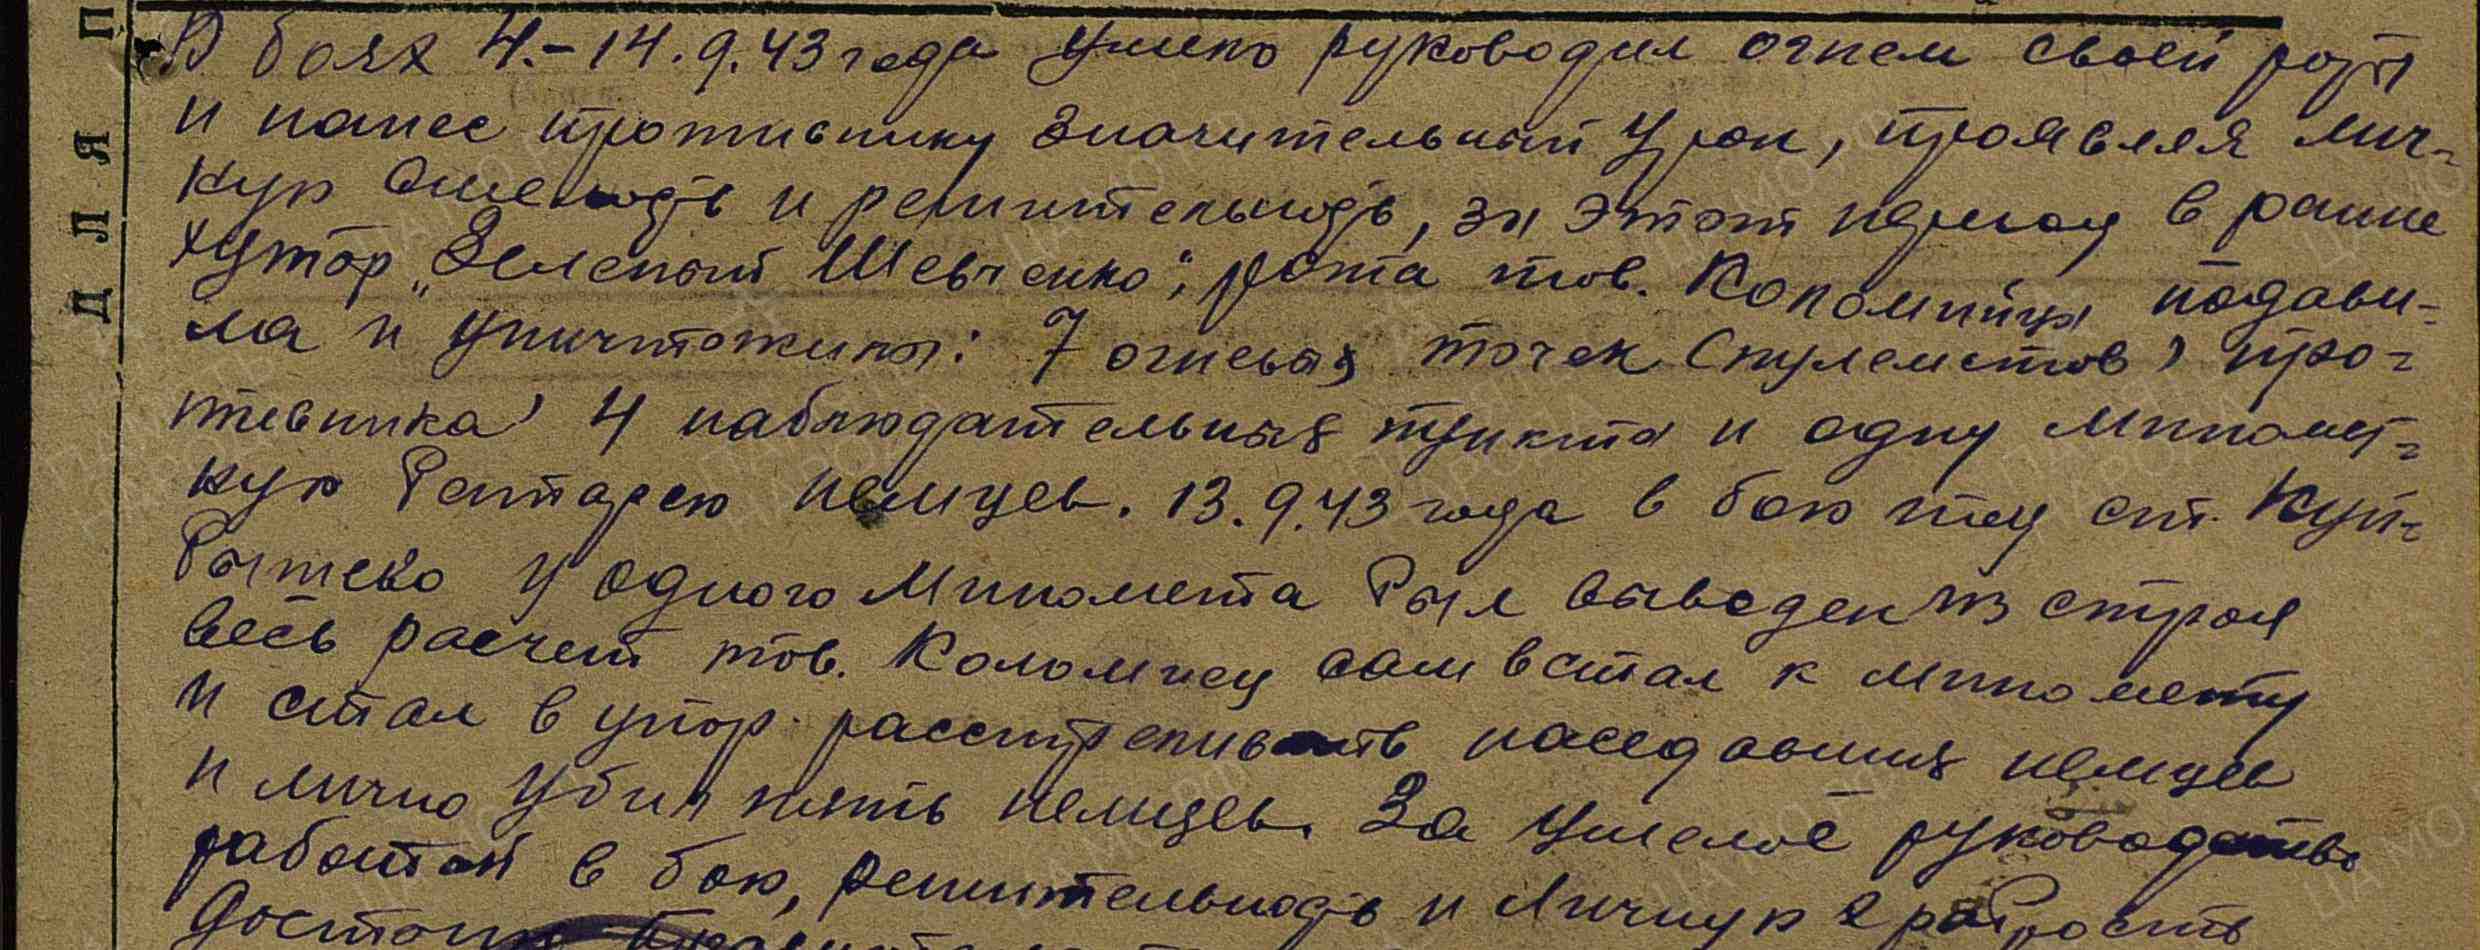 В боях 4.-14.9.43 года умело руководил огнем своей роты
и нанес противнику значительный урон, проявляя лич-
ную смелость и решительность, за этот период в районе
хутор „Зеленый Шевченко“; рота тов. Коломийца подави-
ла и уничтожила: 7 огневых точек (пулеметов) про-
тивника, 4 наблюдательных пункта и одну миномет-
ную батарею немцев. 13.9.43 года в бою под ст. Куй-
бышево у одного миномета был выведен из строя
весь расчет тов. Коломиец сам встал к миномету
и стал в упор расстреливать наседавших немцев
и лично убил пять немцев. За умелое руководство
работой в бою, решительность и личную храбрость
Достоин
ДЛЯ П